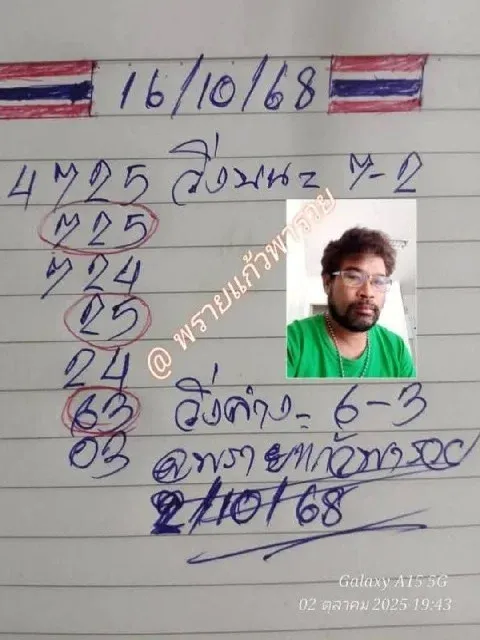 16/10/68
4725 วิ่งบน= 7-2
725
724
25
24
63 วิ่งล่าง= 6-3
03 @พรายแก้วพารวย
2/10/68
@ พรายแก้วพารวย
Galaxy A15 5G
02 ตุลาคม 2025 19:43